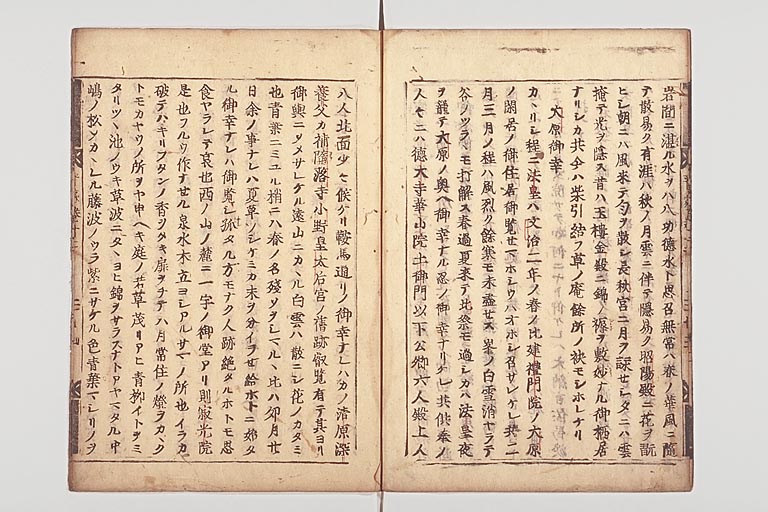 岩間ニ湛ル水ヲハ八功徳水ト思召無常ハ春ノ華風ニ随
テ散易ク有涯ハ秋ノ月雲ニ伴テ隠易ク昭陽殿ニ花ヲ翫
ヒシ朝ニハ風来テ匂ヲ散シ長秋宮ニ月ヲ詠セシタニハ雲
掩テ光ヲ隠ス昔ハ玉樓金殿ニ錦ノ褥ヲ敷妙ナル御栖居
ナリシカ共今ハ柴引結フ草ノ庵餘所ノ袂モシホレケリ
大原御幸
カヽリシ程ニ法皇ハ文治二年ノ春ノ比建禮門院ノ大原
ノ閑居ノ御住居御覧セマホシウハオホシ召サレケレ共二
月三月ノ程ハ風烈ク餘寒モ未盡セス峯ノ白雪消ヤラテ
谷ノツラヽモ打解ス春過夏来テ北祭モ過シカハ法皇夜
ヲ籠テ大原ノ奥ヘ御幸ナル忍ノ御幸ナリケレ共供奉ノ
人々ニハ徳大寺華山院土御門以下公卿六人殿上人
八人北面少々候ケリ鞍馬通リノ御幸ナレハカノ清原深
養父カ補陀洛寺小野皇太后宮ノ舊跡叡覧有テ其ヨリ
御輿ニソメサレケル遠山ニカヽル白雲ハ散ニシ花ノカタミ
也青葉ニミユル梢ニハ春ノ名残ソヲシマルヽ比ハ卯月廿
日余ノ事ナレハ夏草ノシケミカ末ヲ分イラセ給ホトニ始タ
ル御幸ナレハ御覧シ狎タル方モナク人跡絶タルホトモ思
食ヤラレテ哀也西ノ山ノ麓ニ一宇ノ御堂アリ則寂光院
是也フルウ作ナせル泉水木立ヨシアルサマノ所也イラカ
破テハキリフタンノ香ヲタキ扉ヲチテハ月常住ノ燈ヲカヽク
トモカヤウノ所ヲヤ申ヘキ庭ノ若草茂リアヒ青柳イトヲミ
タリツヽ池ノウキ草波ニタヽヨヒ錦ヲサラスナトアヤマタル中
嶋ノ松ノカヽレル藤波ノウラ紫ニサケル色青葉マシリノヲ